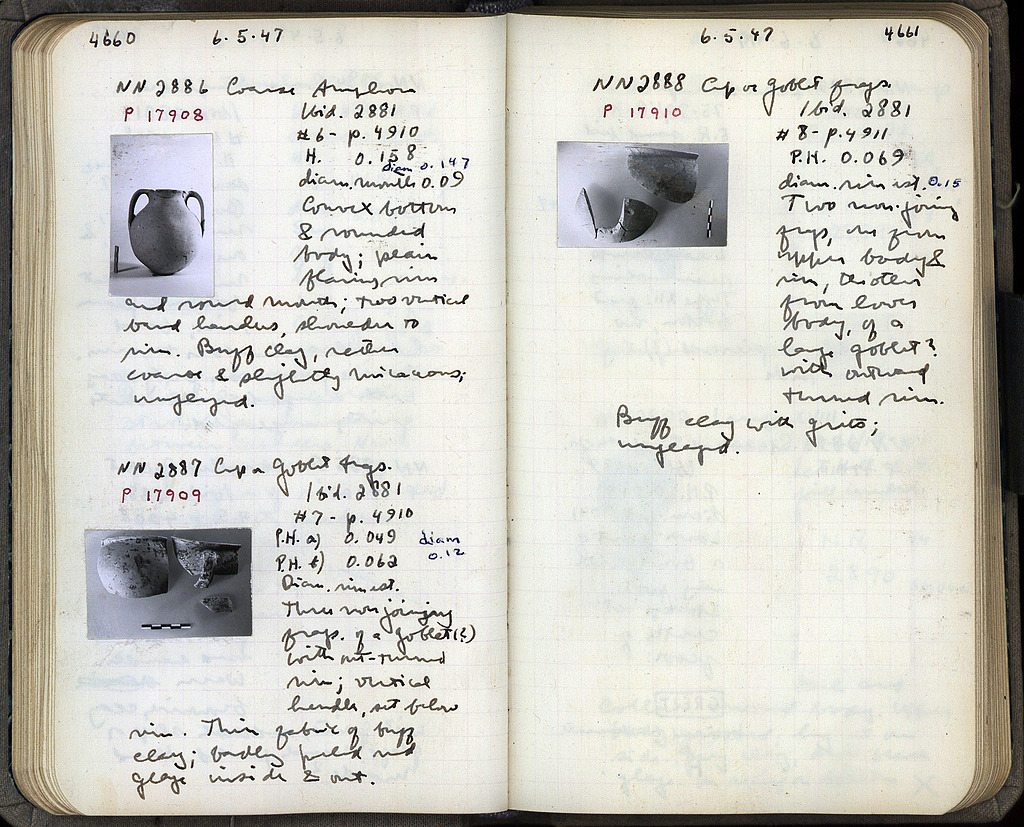 4660 6.5.47
NN 2886 Coarse Amphora
P 17908
Ibid. 2881
#6 - p. 4910
H. 0.158
diam 0.147
diam. mouth 0.09
Convex bottom
& rounded
body; plain
flaring rim
and round mouth; two vertical
band handles, shoulder to
rim. Buff clay, rather
coarse & slightly micaceous;
unglazed.
NN 2887 Cup or goblet frags.
P 17909
Ibid. 2881
#7 - p. 4910
P.H. a) 0.049 diam
P.H. b) 0.062 0.12
Diam. rim est.
Three non joining
frags. of a goblet(?)
with out-turned
rim; vertical
handle, set below
rim. Thin fabric of buff
clay; badly peeled red
glaze inside & out.
6.5.47 4661
NN 2888 Cup or goblet frags.
P 17910
Ibid. 2881
#8 - p. 4911
P.H. 0.069
diam. rim est. 0.15
Two non-joining
frags, one from
upper body &
rim, the other
from lower
body, of a
large goblet?
with outward
turned rim.
Buff clay with grits;
unglazed.